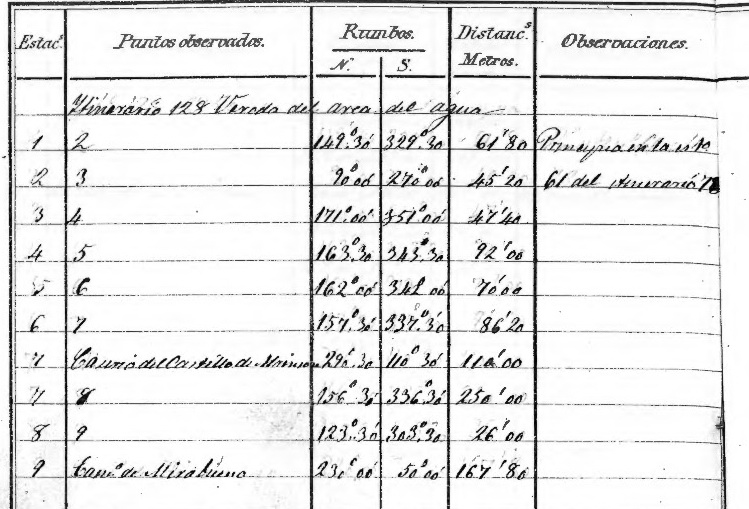 Estac.s Puntos observados. Rumbos. Distanc.s Observaciones.
N. S. Metros.
Itinerario 128 Vereda del area del agua
1 2 149°30' 329°30 61'80 Principia en la est.n
2 3 90°00 270°00 45'20 61 del itinerario
3 4 171°00' 351°00 47'40
4 5 163°30 343°30 92'00
5 6 162°00 342 00 70'00
6 7 157°30' 337°30 86'20
7 Camino del Castillo de 290°30 110°30' 110'00
7 8 156°30 336°30 250'00
8 9 123°30 303°30 26'00
9 Cam.o de Mirabueno 230°00 50°00' 167'80